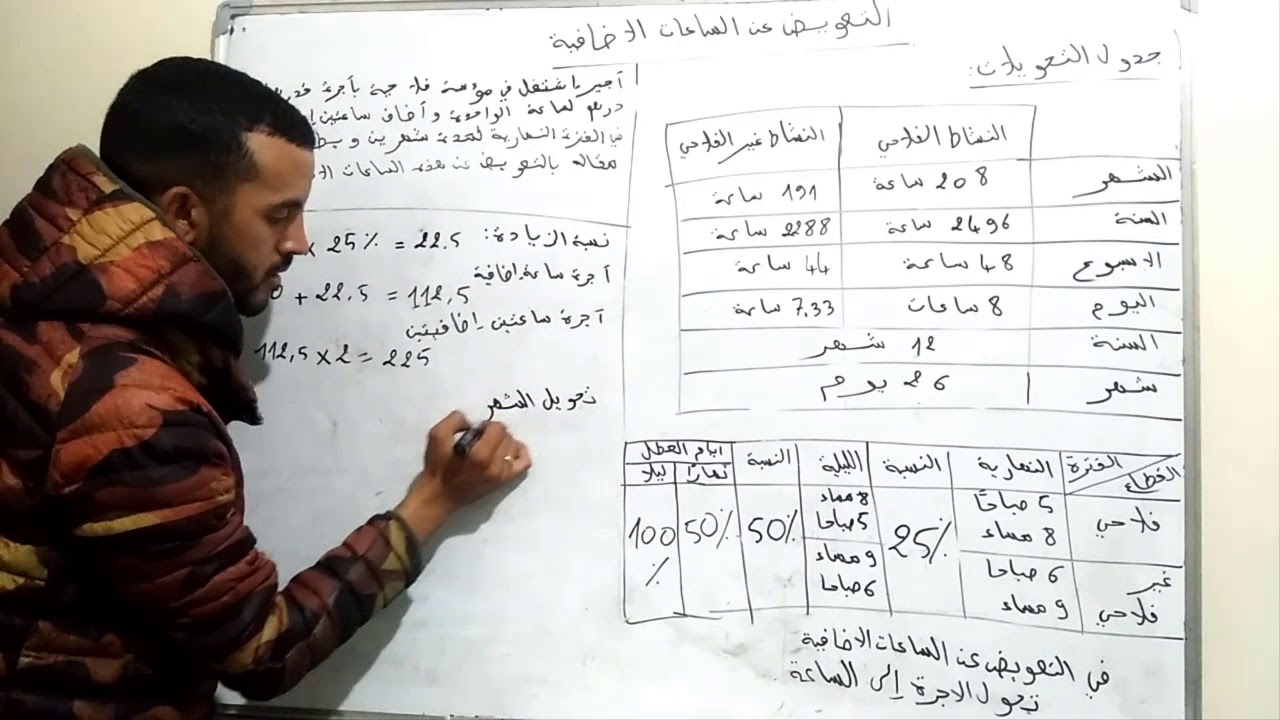 التعويض عن الساعات الاضافية
جدول التحويلات:
النشاط الفلاحي النشاط غير الفلاحي
الشهر 208 ساعة 191 ساعة
السنة 2496 ساعة 2288 ساعة
الاسبوع 48 ساعة 44 ساعة
اليوم 8 ساعات 7,33 ساعة
السنة 12 شهر
شهر 26 يوم
الفترة النهارية النسبة الليلة النسبة ايام العطل
القطاع نهارا ليلا
فلاحي 5 صباحًا 8 مساء 25% 8 مساء 5 صباحا 50% 50% 100%
غير فلاحي 6 صباحا 9 مساء 9 مساء 6 صباحا
في التعويض عن الساعات الاضافية
نحول الاجرة إلى الساعة
أجير اشتغل في مؤسسة فلاحية بأجرة
درهم لساعة الواحدة و أضاف ساعتين
في الفترة النهارية لمدة شهرين و
بالتعويض عن هذه الساعات
نسبة الزيادة:
x 25% = 22.5
أجرة ساعة إضافية
+ 22.5 = 112,5
أجرة ساعتين إضافيتين
112,5 x 2 = 225
تحويل الشهر